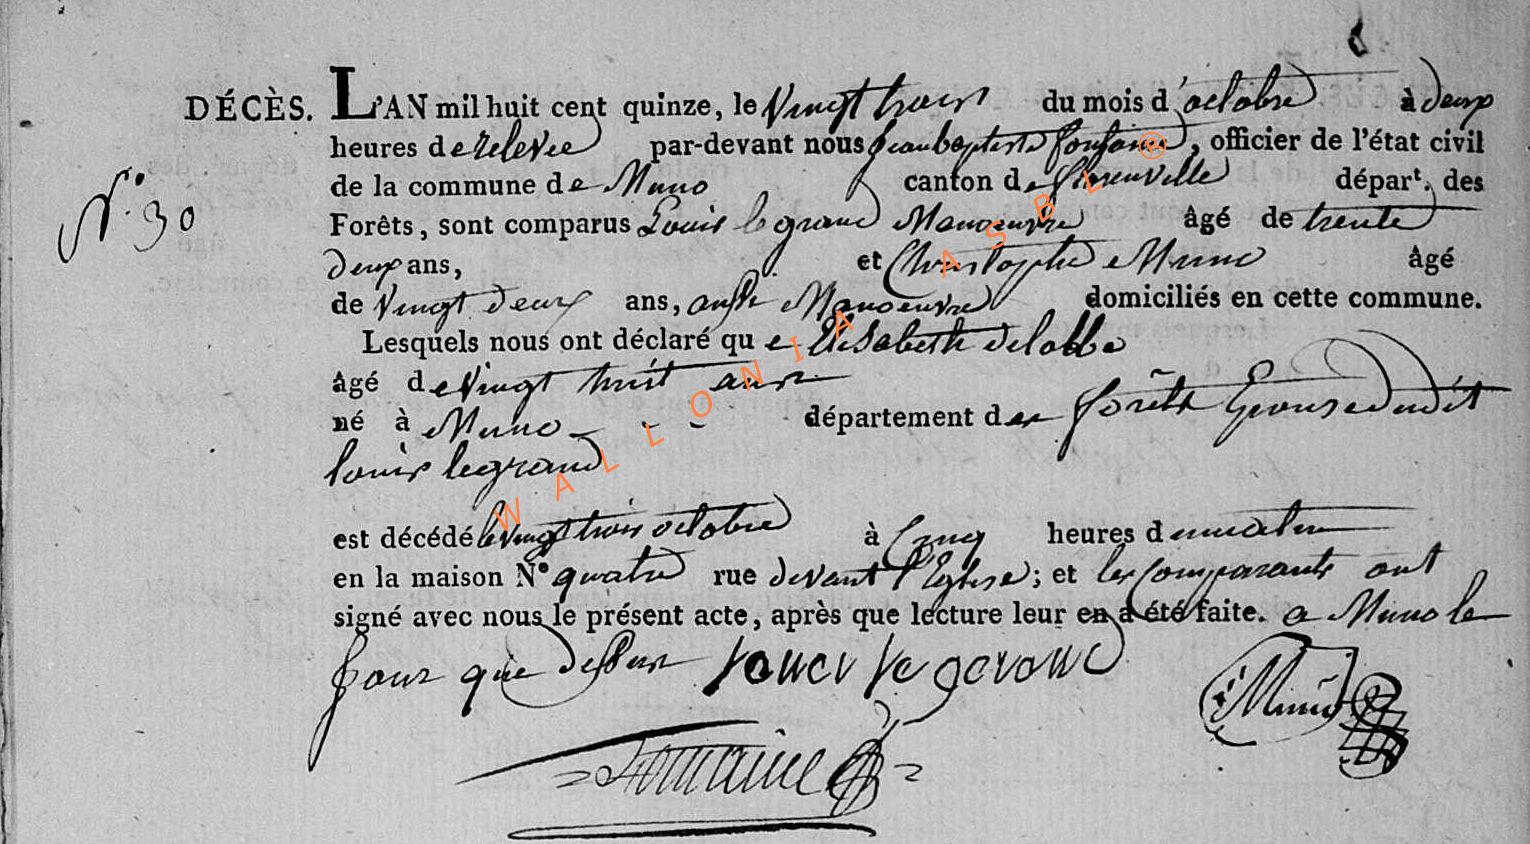 DÉCÈS. L'AN mil huit cent quinze, le Vingt trois du mois d'octobre à deux
heures de relevée par-devant nous Jean baptiste fontaine, officier de l'état civil
N.° 30
de la commune de Muno canton de florenville dépar<sup>t</sup>. des
Forêts, sont comparus Louis legrand Manoeuvre âgé de trente
deux ans, et Christophe Muno âgé
de Vingt deux ans, aussi Manoeuvre domiciliés en cette commune.
Lesquels nous ont déclaré que Elisabeth delobbe
âgé de Vingt huit ans
né à Muno - - - département des forêts Epouse dudit
louis legrand
est décédé le vingt trois octobre à Cinq heures du matin
en la maison N° quatre rue devant l'Eglise; et les Comparants ont
signé avec nous le présent acte, après que lecture leur en a été faite. a Muno le
Jour que dessus louei le gerane
C Muno
fontaine
WALLONIA ASBL ®